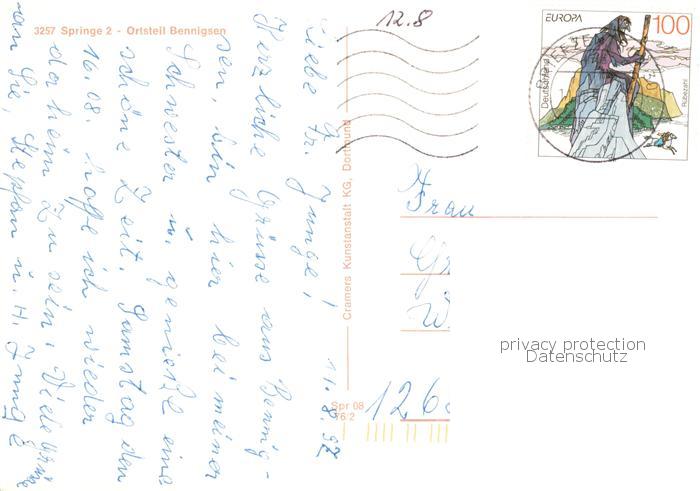 3257 Springe 2 - Ortsteil Bennigsen
12.8
EUROPA
100
Deutschland
Rübezahl
11.8.97
Liebe Fr. Junge!
Herzliche Grüsse aus Bennig-
sen, bin hier bei meiner
Schwester u. genieße eine
schöne Zeit. Samstag den
16.08. hoffe ich wieder
daheim zu sein. Viele Grüße
an Sie, Stephan u. H. Junge
Cramers Kunstanstalt KG, Dortmund
Spr 08
76/2
Frau
126
privacy protection
Datenschutz